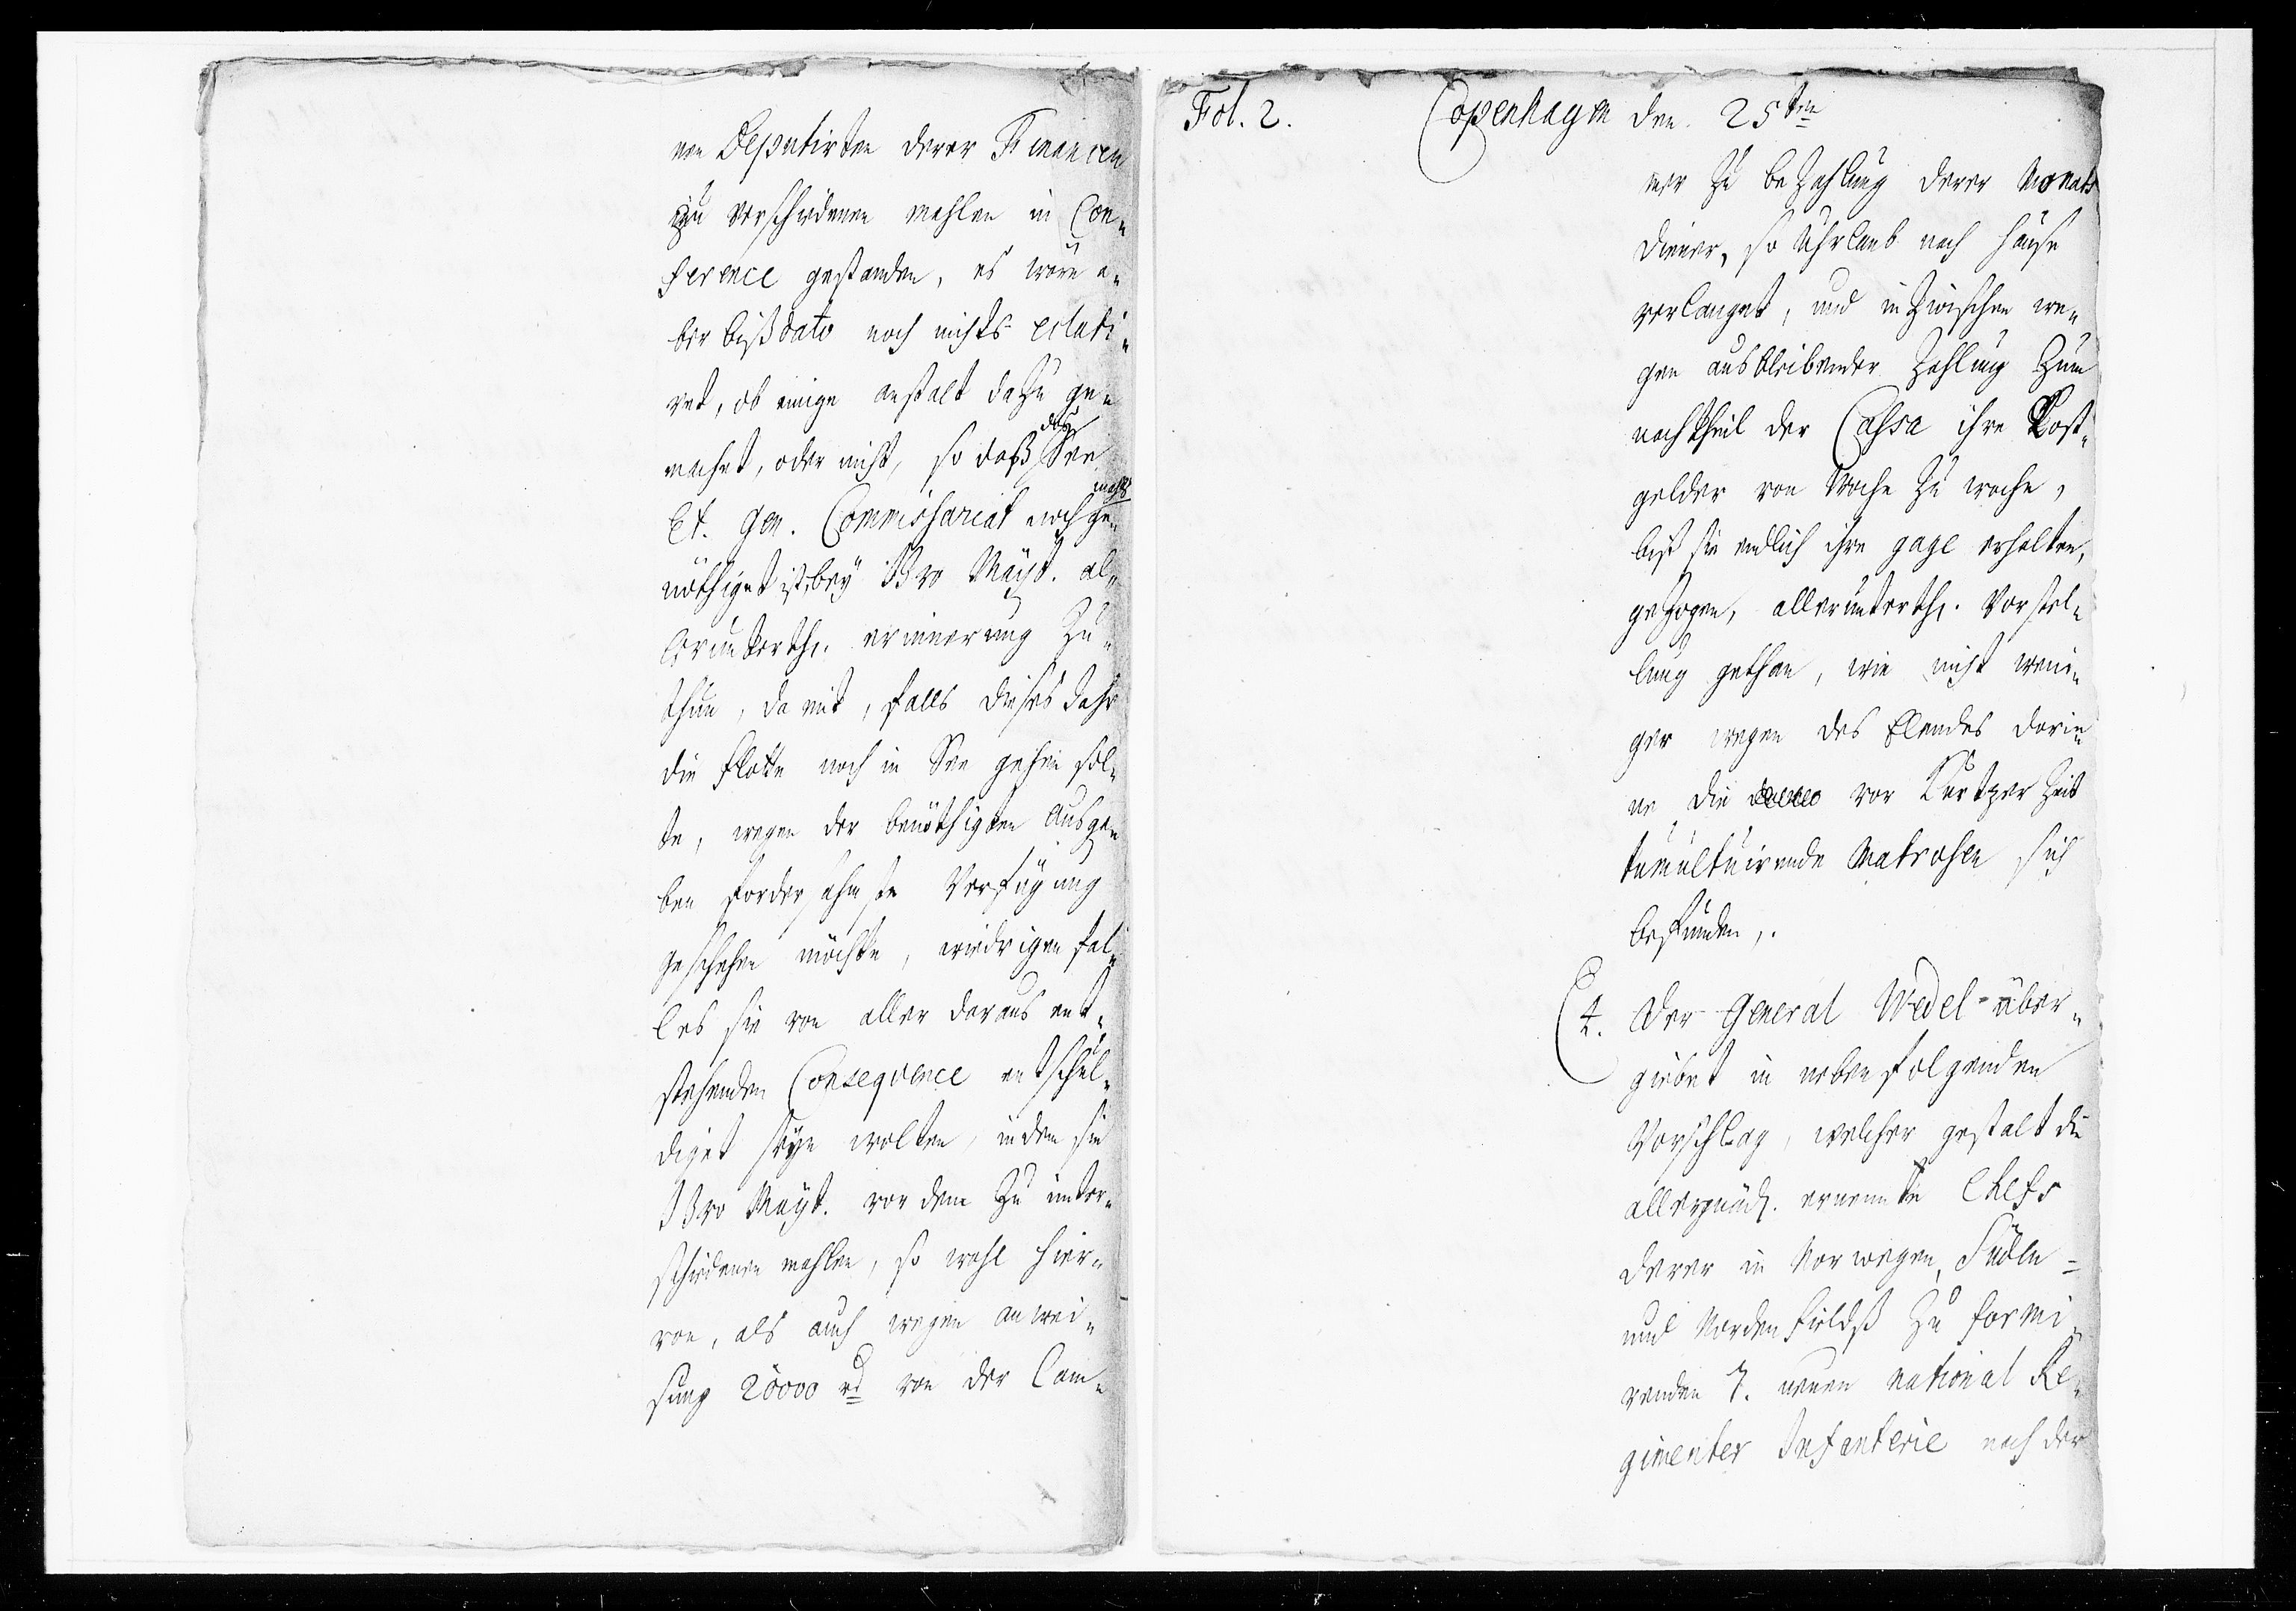 nen Deputirten derer Financen
zu verschiedenen mahlen in Con-
ference gestanden, es wäre a-
ber bißdato noch nichts eclati-
ret, ob einige anstalt dazu ge-
machet, oder nicht, so daß das See
Et. Gen. Commissariat nochmahls ge-
nöthiget ist, bey Ihro Mayt. al-
lerunterth. erinnerung zu
thun, damit, falls dieses Jahr
die flotte noch in See gehen sol-
te, wegen der benöthigten Ausga-
ben fordersahmste Verfügung
geschehen möchte, wiedrigen fal-
les sie von aller daraus ent-
stehenden Consequence entschul-
diget seyn wolten, indem sie
Ihro Mayt. vor dem zu unter-
schiedenen mahlen, so wohl hier-
von, als auch wegen anwei-
sung 20000 rd von der Cam-
Fol. 2. Copenhagen den 25ten
mer zu bezahlung derer Monats
diener, so Uhrlaub nach Hause
verlanget, und inzwischen we-
gen ausbleibender Zahlung zum
nachtheil der Cassa ihre Kost-
gelder von Woche zu woche,
biß sie endlich ihre gage erhalten,
gezogen, allerunterth. Vorstel-
lung gethan, wie nicht weni-
ger wegen des Elendes dorin-
ne die vor Kurtzer Zeit
tumultuirende Matrosen sich
befunden.
4. Der General Wedel über-
giebet in nebenfolgenden
Vorschlag, welcher gestalt die
allergnäd. ernennte Chefs
derer in Norwegen, Süden-
und Nordenfields zu formi-
renden 7. neuen national Re-
gimenter Infanterie nach der